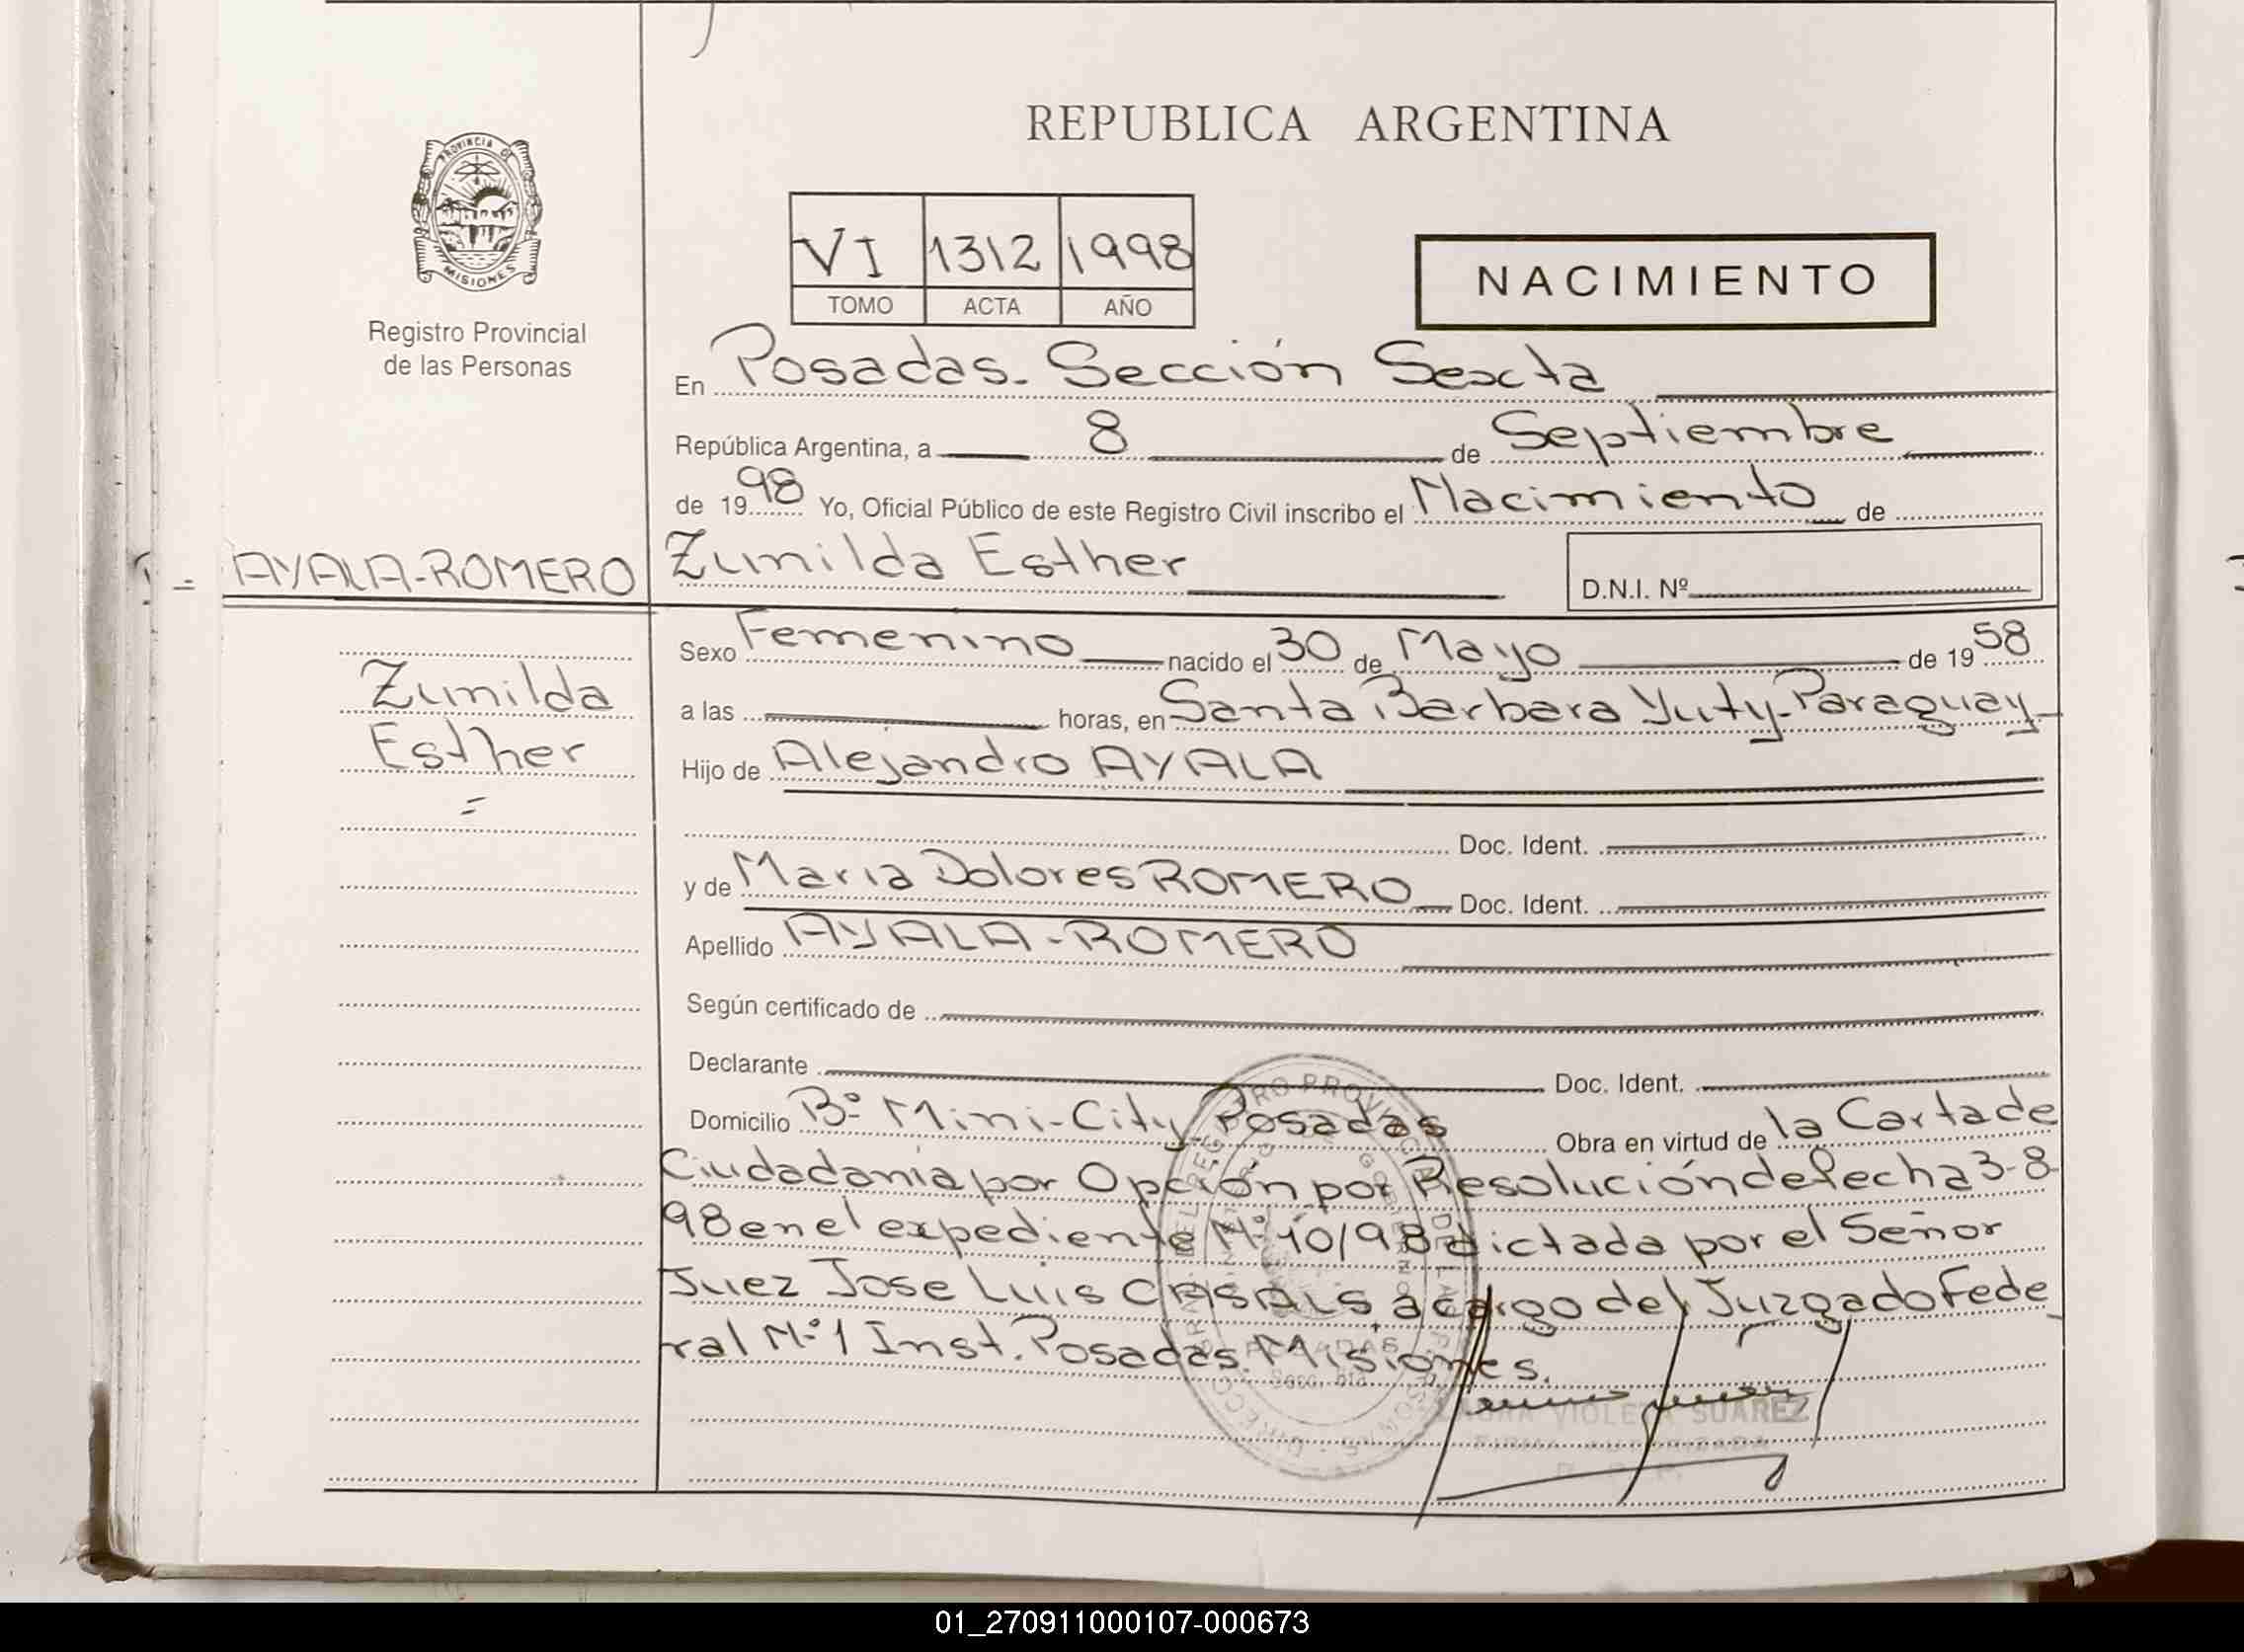 REPUBLICA ARGENTINA
PROVINCIA DE
MISIONES
Registro Provincial
de las Personas
VI 1312 1998
TOMO ACTA AÑO
NACIMIENTO
En Posadas. Sección Sexta
República Argentina, a 8 de Septiembre
de 1998 Yo, Oficial Público de este Registro Civil inscribo el Nacimiento de
AYALA-ROMERO
Zunilda Esther
D.N.I. Nº
Zunilda
Esther
Sexo Femenino nacido el 30 de Mayo de 1958
a las horas, en Santa Barbara Yuty-Paraguay
Hijo de Alejandro AYALA
Doc. Ident.
y de Maria Dolores ROMERO Doc. Ident.
Apellido AYALA-ROMERO
Según certificado de
Declarante Doc. Ident.
Domicilio Bº Mini-City Posadas Obra en virtud de la Carta de
Ciudadanía por Opción por Resolución de fecha 3-8-
98 en el expediente Nº 10/98 dictada por el Señor
Juez Jose Luis CASALS, a cargo del Juzgado Fede
ral Nº 1 Inst. Posadas. Misiones.
VIOLETA SUAREZ
FIRMA AUTORIZADA
01_270911000107-000673